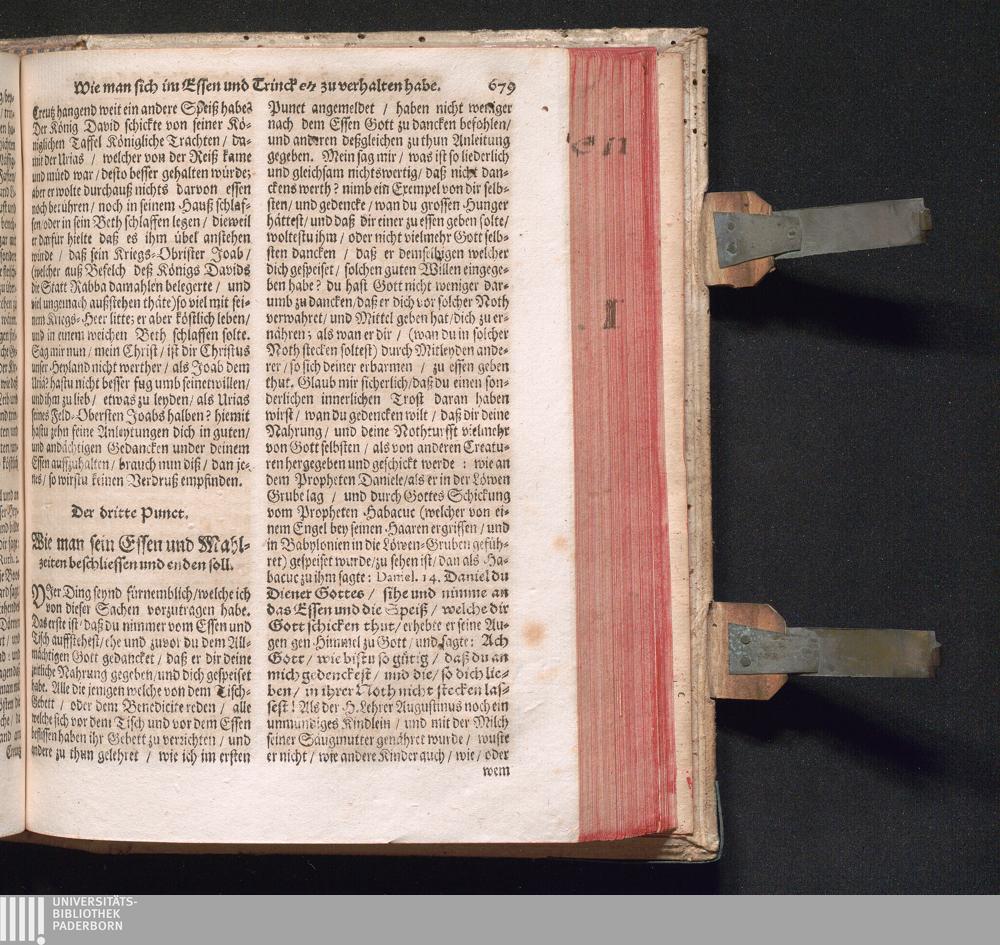 Wie man sich im Essen und Trincken zu verhalten habe. 679
Creutz hangend weit ein andere Speiß habe?
Der König David schickte von seiner Kö-
niglichen Taffel Königliche Trachten / da-
mit der Urias / welcher von der Reiß kame
und müed war / desto besser gehalten würde;
aber er wolte durchauß nichts darvon essen
noch berühren / noch in seinem Hauß schlaf-
fen / oder in sein Beth schlaffen legen / dieweil
er darfür hielte daß es ihm übel anstehen
würde / daß sein Kriegs-Obrister Joab /
(welcher auß Befelch deß Königs Davids
die Statt Rabba damahlen belegerte / und
viel ungemach außstehen thäte) so viel mit sei-
nem Kriegs-Heer litte; er aber köstlich leben /
und in einem weichen Beth schlaffen solte.
Sag mir nun / mein Christ / ist dir Christus
unser Heyland nicht werther / als Joab dem
Uriä? hastu nicht besser fug umb seinetwillen /
und ihm zu lieb / etwas zu leyden / als Urias
seines Feld-Obersten Joabs halben? hiemit
hastu zehn feine Anleytungen dich in guten /
und andächtigen Gedancken under deinem
Essen auffzuhalten / brauch nun diß / dan je-
nes / so wirstu keinen Verdruß empfinden.
Der dritte Punct.
Wie man sein Essen und Mahl-
zeiten beschliessen und enden soll.
VIer Ding seynd fürnemblich / welche ich
von dieser Sachen vorzutragen habe.
Das erste ist / daß du nimmer vom Essen und
Tisch auffstehest / ehe und zuvor du dem All-
mächtigen Gott gedancket / daß er dir deine
zeitliche Nahrung gegeben / und dich gespeiset
habe. Alle die jenigen welche von dem Tisch-
Gebett / oder dem Benedicite reden / alle
welche sich vor dem Tisch und vor dem Essen
beflissen haben ihr Gebett zu verrichten / und
andere zu thun gelehret / wie ich im ersten
Punct angemeldet / haben nicht weniger
nach dem Essen Gott zu dancken befohlen /
und anderen deßgleichen zu thun Anleitung
gegeben. Mein sag mir / was ist so liederlich
und gleichsam nichtswertig / daß nicht dan-
ckens werth? nimb ein Exempel von dir selb-
sten / und gedencke / wan du grossen Hunger
hättest / und daß dir einer zu essen geben solte /
woltestu ihm / oder nicht vielmehr Gott selb-
sten dancken / daß er demselbigen welcher
dich gespeiset / solchen guten Willen eingege-
ben habe? du hast Gott nicht weniger dar-
umb zu dancken / daß er dich vor solcher Noth
verwahret / und Mittel geben hat / dich zu er-
nähren; als wan er dir / (wan du in solcher
Noth stecken soltest) durch Mitleyden ande-
rer / so sich deiner erbarmen / zu essen geben
thut. Glaub mir sicherlich / daß du einen son-
derlichen innerlichen Trost daran haben
wirst / wan du gedencken wilt / daß dir deine
Nahrung / und deine Nothturfft vielmehr
von Gott selbsten / als von anderen Creatu-
ren hergegeben und geschickt werde : wie an
dem Propheten Daniele / als er in der Löwen
Grube lag / und durch Gottes Schickung
vom Propheten Habacuc (welcher von ei-
nem Engel bey seinen Haaren ergriffen / und
in Babylonien in die Löwen-Gruben gefüh-
ret) gespeiset wurde / zu sehen ist / dan als Ha-
bacuc zu ihm sagte: Daniel. 14. Daniel du
Diener Gottes / sihe und nimme an
das Essen und die Speiß / welche dir
Gott schicken thut / erhebte er seine Au-
gen gen Himmel zu Gott / und sagte: Ach
Gott / wie bistu so gütig / daß du an
mich gedenckest / und die / so dich lie-
ben / in ihrer Noth nicht stecken las-
sest! Als der H. Lehrer Augustinus noch ein
unmündiges Kindlein / und mit der Milch
seiner Säugmutter genähret wurde / wuste
er nicht / wie andere Kinder auch / wie / oder
wem
UNIVERSITÄTS-
BIBLIOTHEK
PADERBORN